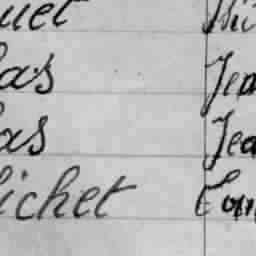 uet
as Jea
as Jea
ichet Cou